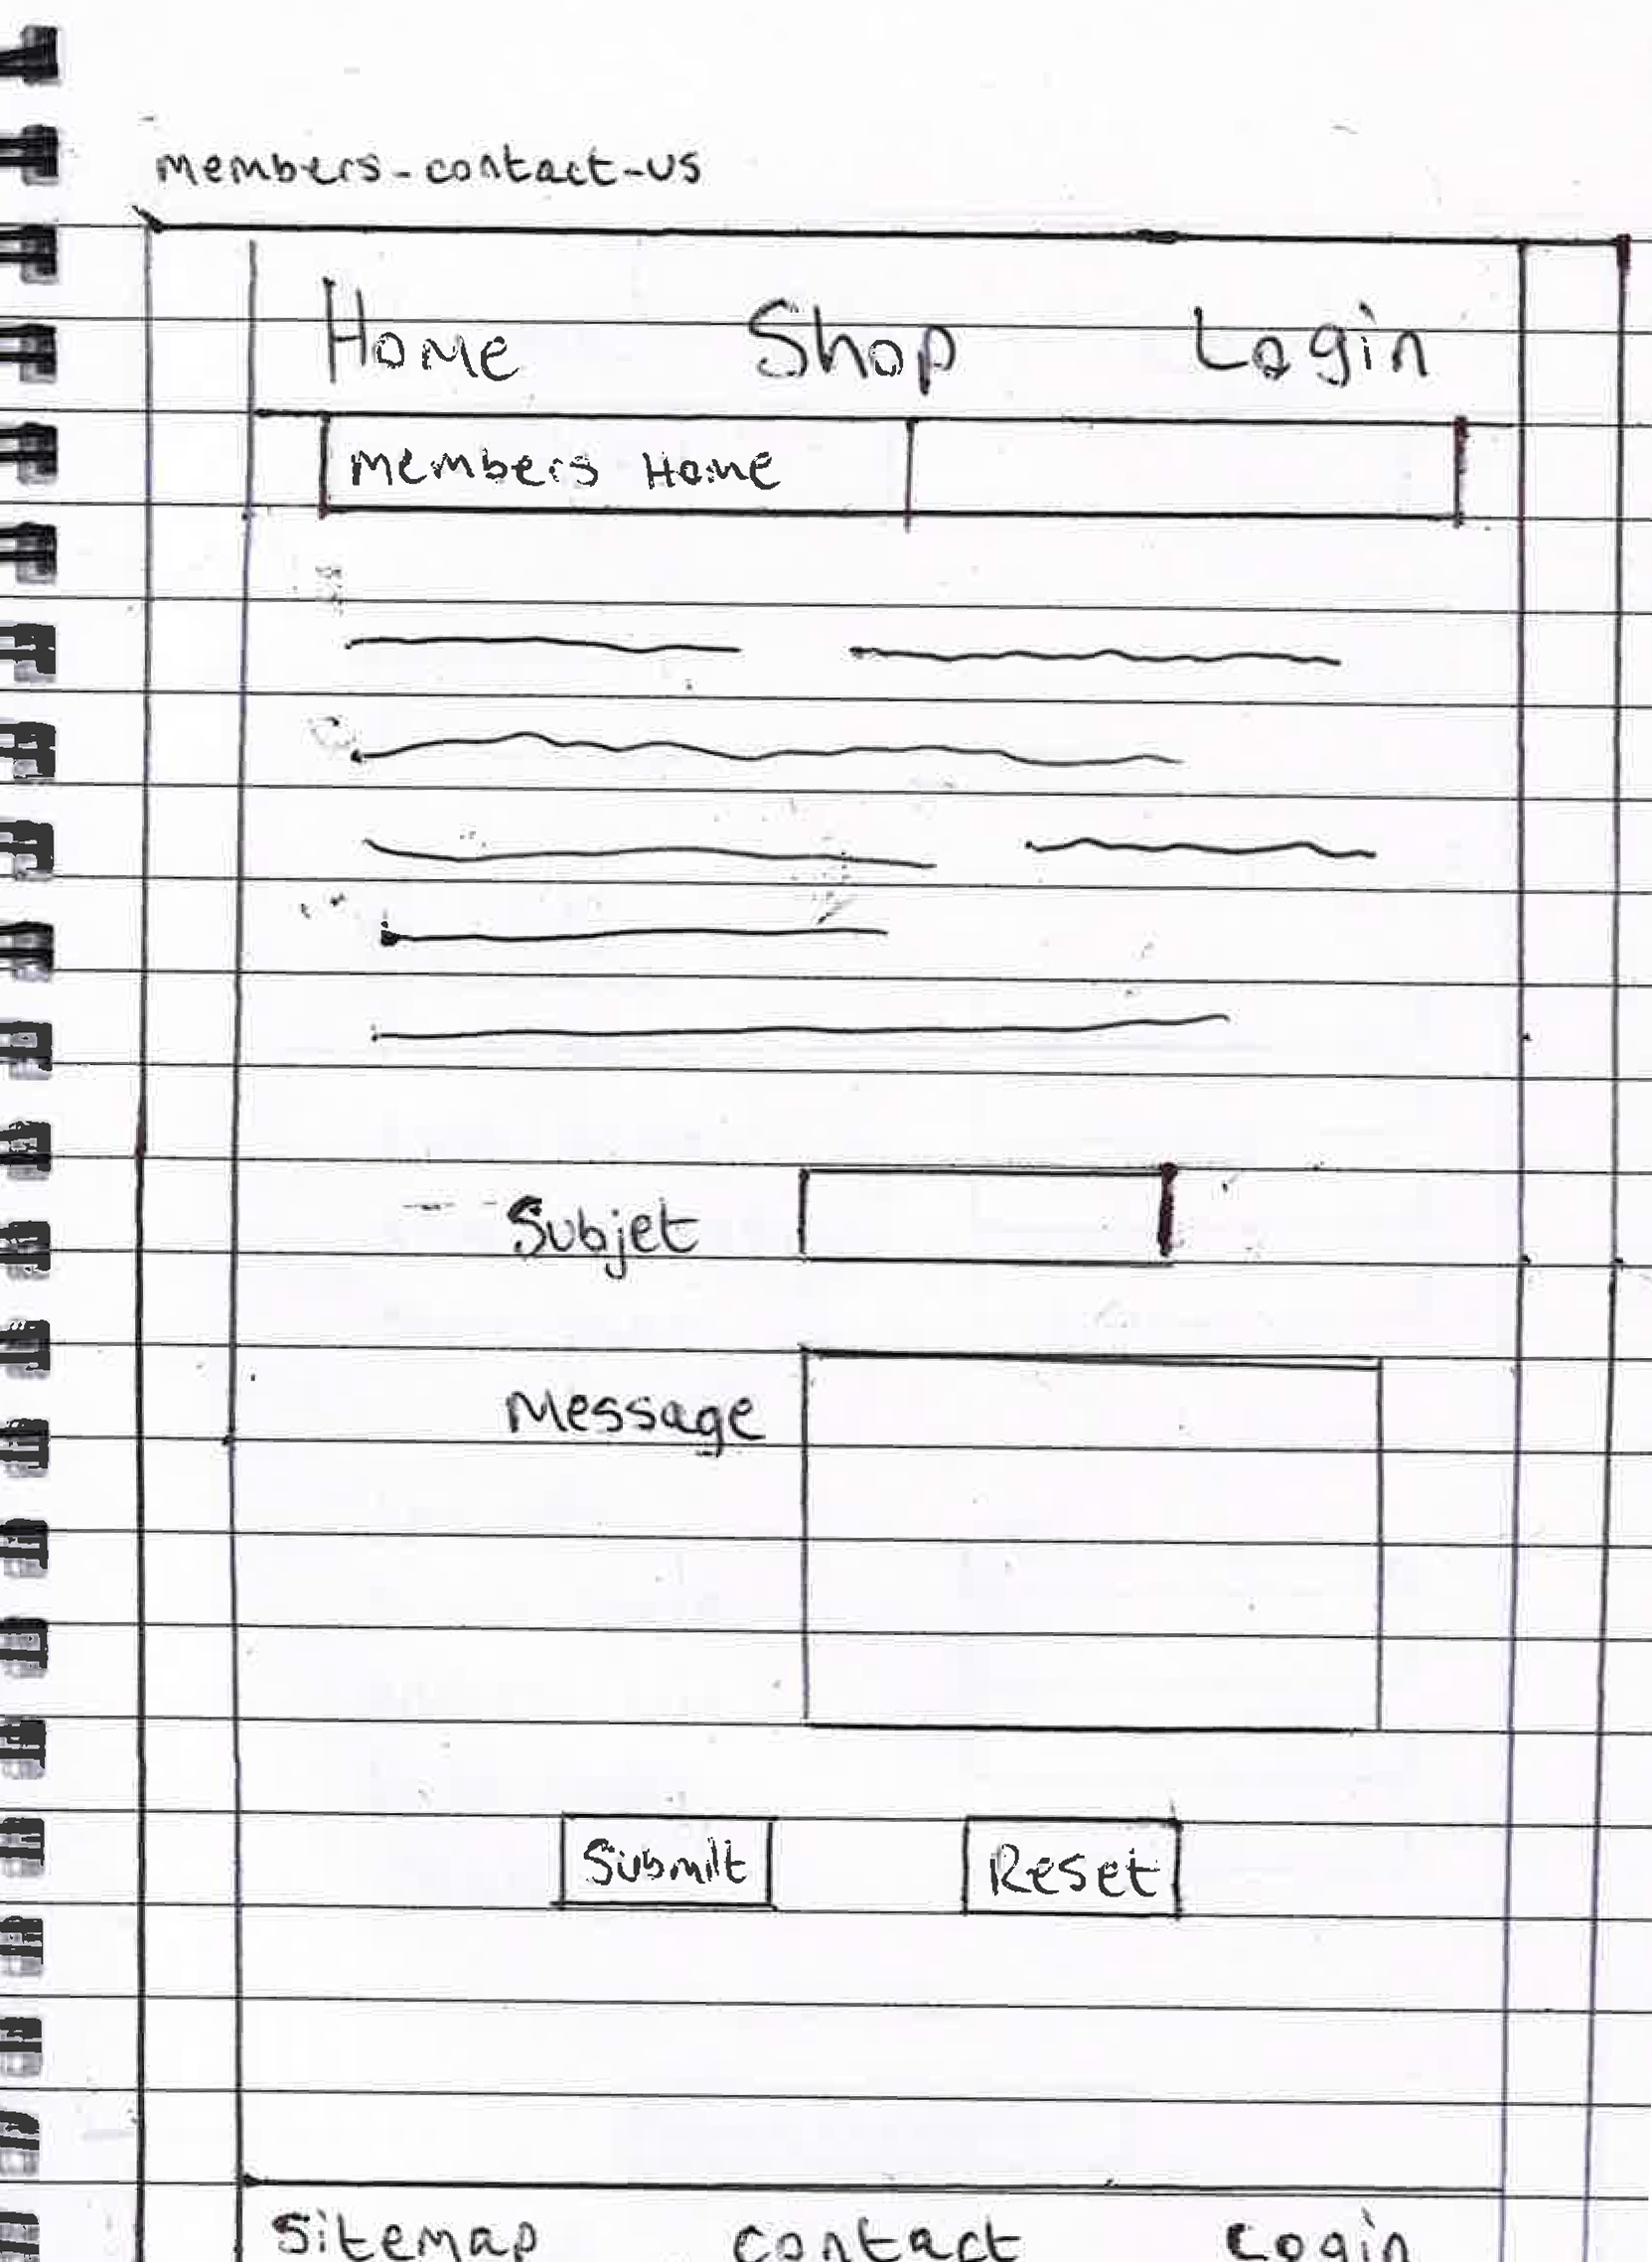 members-contact-us
Home Shop Login
Members Home
Subjet
Message
Submit Reset
Sitemap contact Login